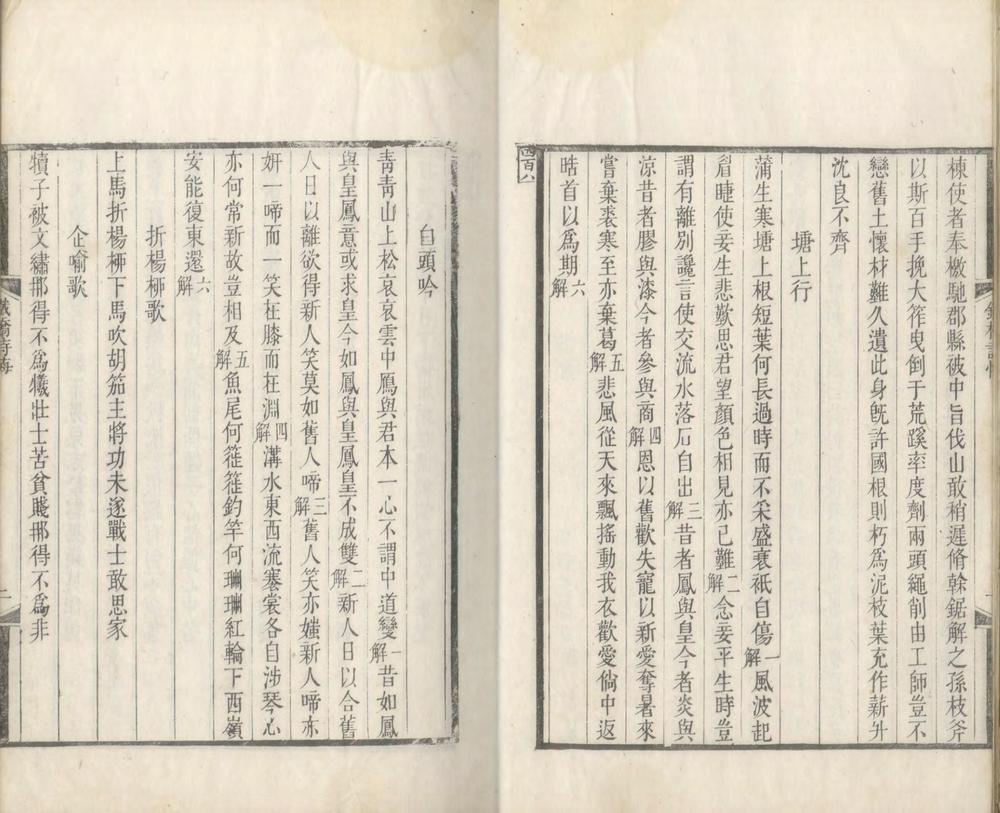 棟使者奉檄馳郡縣被中旨伐山敢稍遲脩榦鋸解之孫枝斧
以斯百手挽大筰曳倒于荒蹊率度劑兩頭繩削由工師豈不
戀舊土懷材難久遺此身旣許國根則朽爲泥枝葉充作薪升
沈良不齊
塘上行
蒲生寒塘上根短葉何長過時而不采盛衰祇自傷一解風波起
眉睫使妾生悲歎思君望顏色相見亦已難二解念妾平生時豈
謂有離別讒言使交流水落石自出三解昔者鳳與皇今者炎與
涼昔者膠與漆今者參與商四解恩以舊歡失寵以新愛奪暑來
嘗棄裘寒至亦棄葛五解悲風從天來飄搖動我衣歡愛倘中返
晧首以爲期六解
四百八
白頭吟
靑靑山上松哀哀雲中鴈與君本一心不謂中道變一解昔如鳳
與皇鳳意或求皇今如鳳與皇鳳皇不成雙二解新人日以合舊
人日以離欲得新人笑莫如舊人啼三解舊人笑亦媸新人啼亦
妍一啼而一笑在膝而在淵四解溝水東西流褰裳各自涉琴心
亦何常新故豈相及五解魚尾何簁簁釣竿何珊珊紅輪下西嶺
安能復東還六解
折楊柳歌
上馬折楊柳下馬吹胡笳主將功未遂戰士敢思家
企喻歌
犢子被文繡那得不爲犧壯士苦貧賤那得不爲非
二